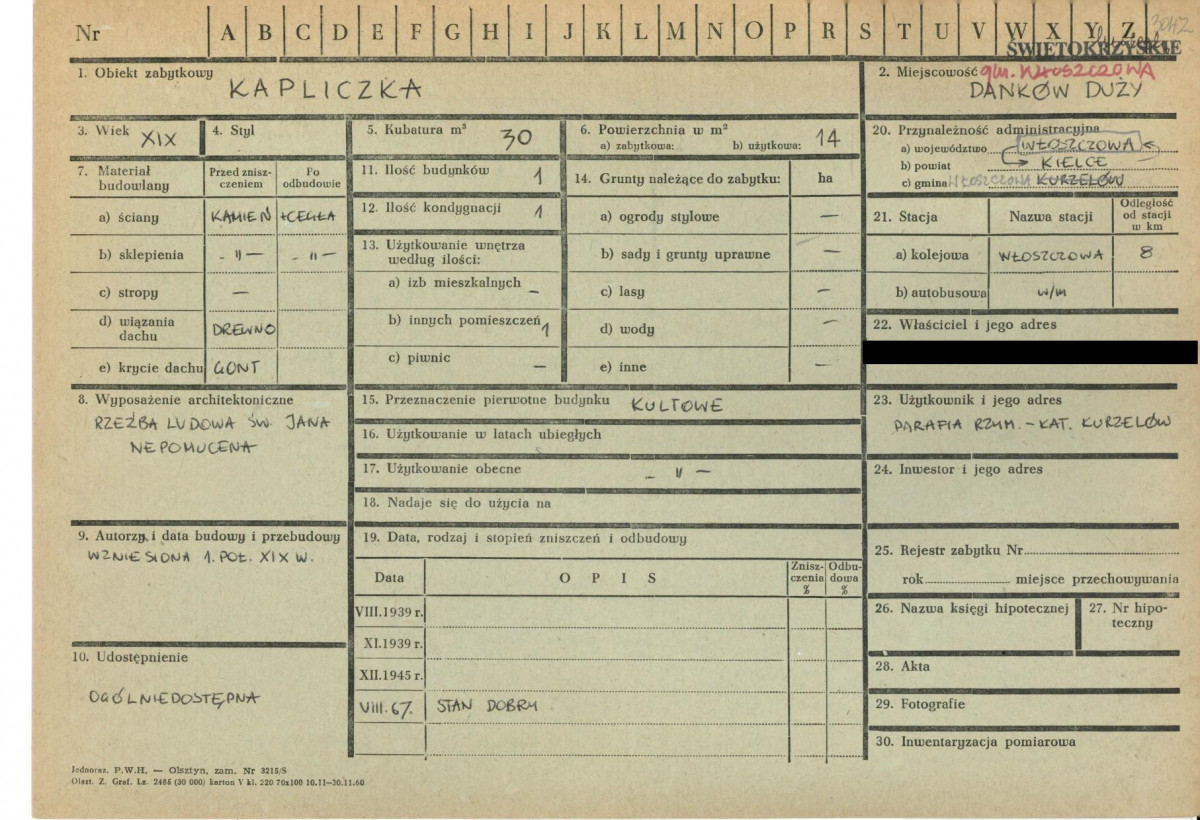 Nr A B C D E F G H I J K L M N O P R S T U V W X Y Z
3042
ŚWIĘTOKRZYSKIE
1. Obiekt zabytkowy
KAPLICZKA
2. Miejscowość gm. WŁOSZCZOWA
DANKÓW DUŻY
3. Wiek XIX
4. Styl
5. Kubatura m³ 30
6. Powierzchnia w m²
a) zabytkowa: b) użytkowa: 14
7. Materiał budowlany
Przed zniszczeniem
Po odbudowie
a) ściany KAMIEŃ +CEGŁA
b) sklepienia - " - - " -
c) stropy —
d) wiązania dachu DREWNO
e) krycie dachu GONT
8. Wyposażenie architektoniczne
RZEŹBA LUDOWA ŚW. JANA
NEPOMUCENA
9. Autorzy i data budowy i przebudowy
WZNIESIONA 1. POŁ. XIX W.
10. Udostępnienie
OGÓLNIEDOSTĘPNA
11. Ilość budynków 1
12. Ilość kondygnacji 1
13. Użytkowanie wnętrza
według ilości:
a) izb mieszkalnych —
b) innych pomieszczeń 1
c) piwnic —
14. Grunty należące do zabytku: ha
a) ogrody stylowe —
b) sady i grunty uprawne —
c) lasy —
d) wody —
e) inne —
15. Przeznaczenie pierwotne budynku KULTOWE
16. Użytkowanie w latach ubiegłych
17. Użytkowanie obecne - " -
18. Nadaje się do użycia na
19. Data, rodzaj i stopień zniszczeń i odbudowy
Data OPIS Zniszczenia % Odbudowa %
VIII.1939 r.
XI.1939 r.
XII.1945 r.
VIII.67. STAN DOBRY
20. Przynależność administracyjna
a) województwo WŁOSZCZOWA
b) powiat KIELCE
c) gmina WŁOSZCZOWA KURZELÓW
21. Stacja Nazwa stacji Odległość od stacji w km
a) kolejowa WŁOSZCZOWA 8
b) autobusowa w/m
22. Właściciel i jego adres
23. Użytkownik i jego adres
PARAFIA RZYM.-KAT. KURZELÓW
24. Inwestor i jego adres
25. Rejestr zabytku Nr
rok miejsce przechowywania
26. Nazwa księgi hipotecznej
27. Nr hipoteczny
28. Akta
29. Fotografie
30. Inwentaryzacja pomiarowa
Jednoraz. P.W.H. — Olsztyn, zam. Nr 3215/S
Olszt. Z. Graf. Lz. 2485 (30 000) karton V kl. 220 70x100 10.11—30.11.60